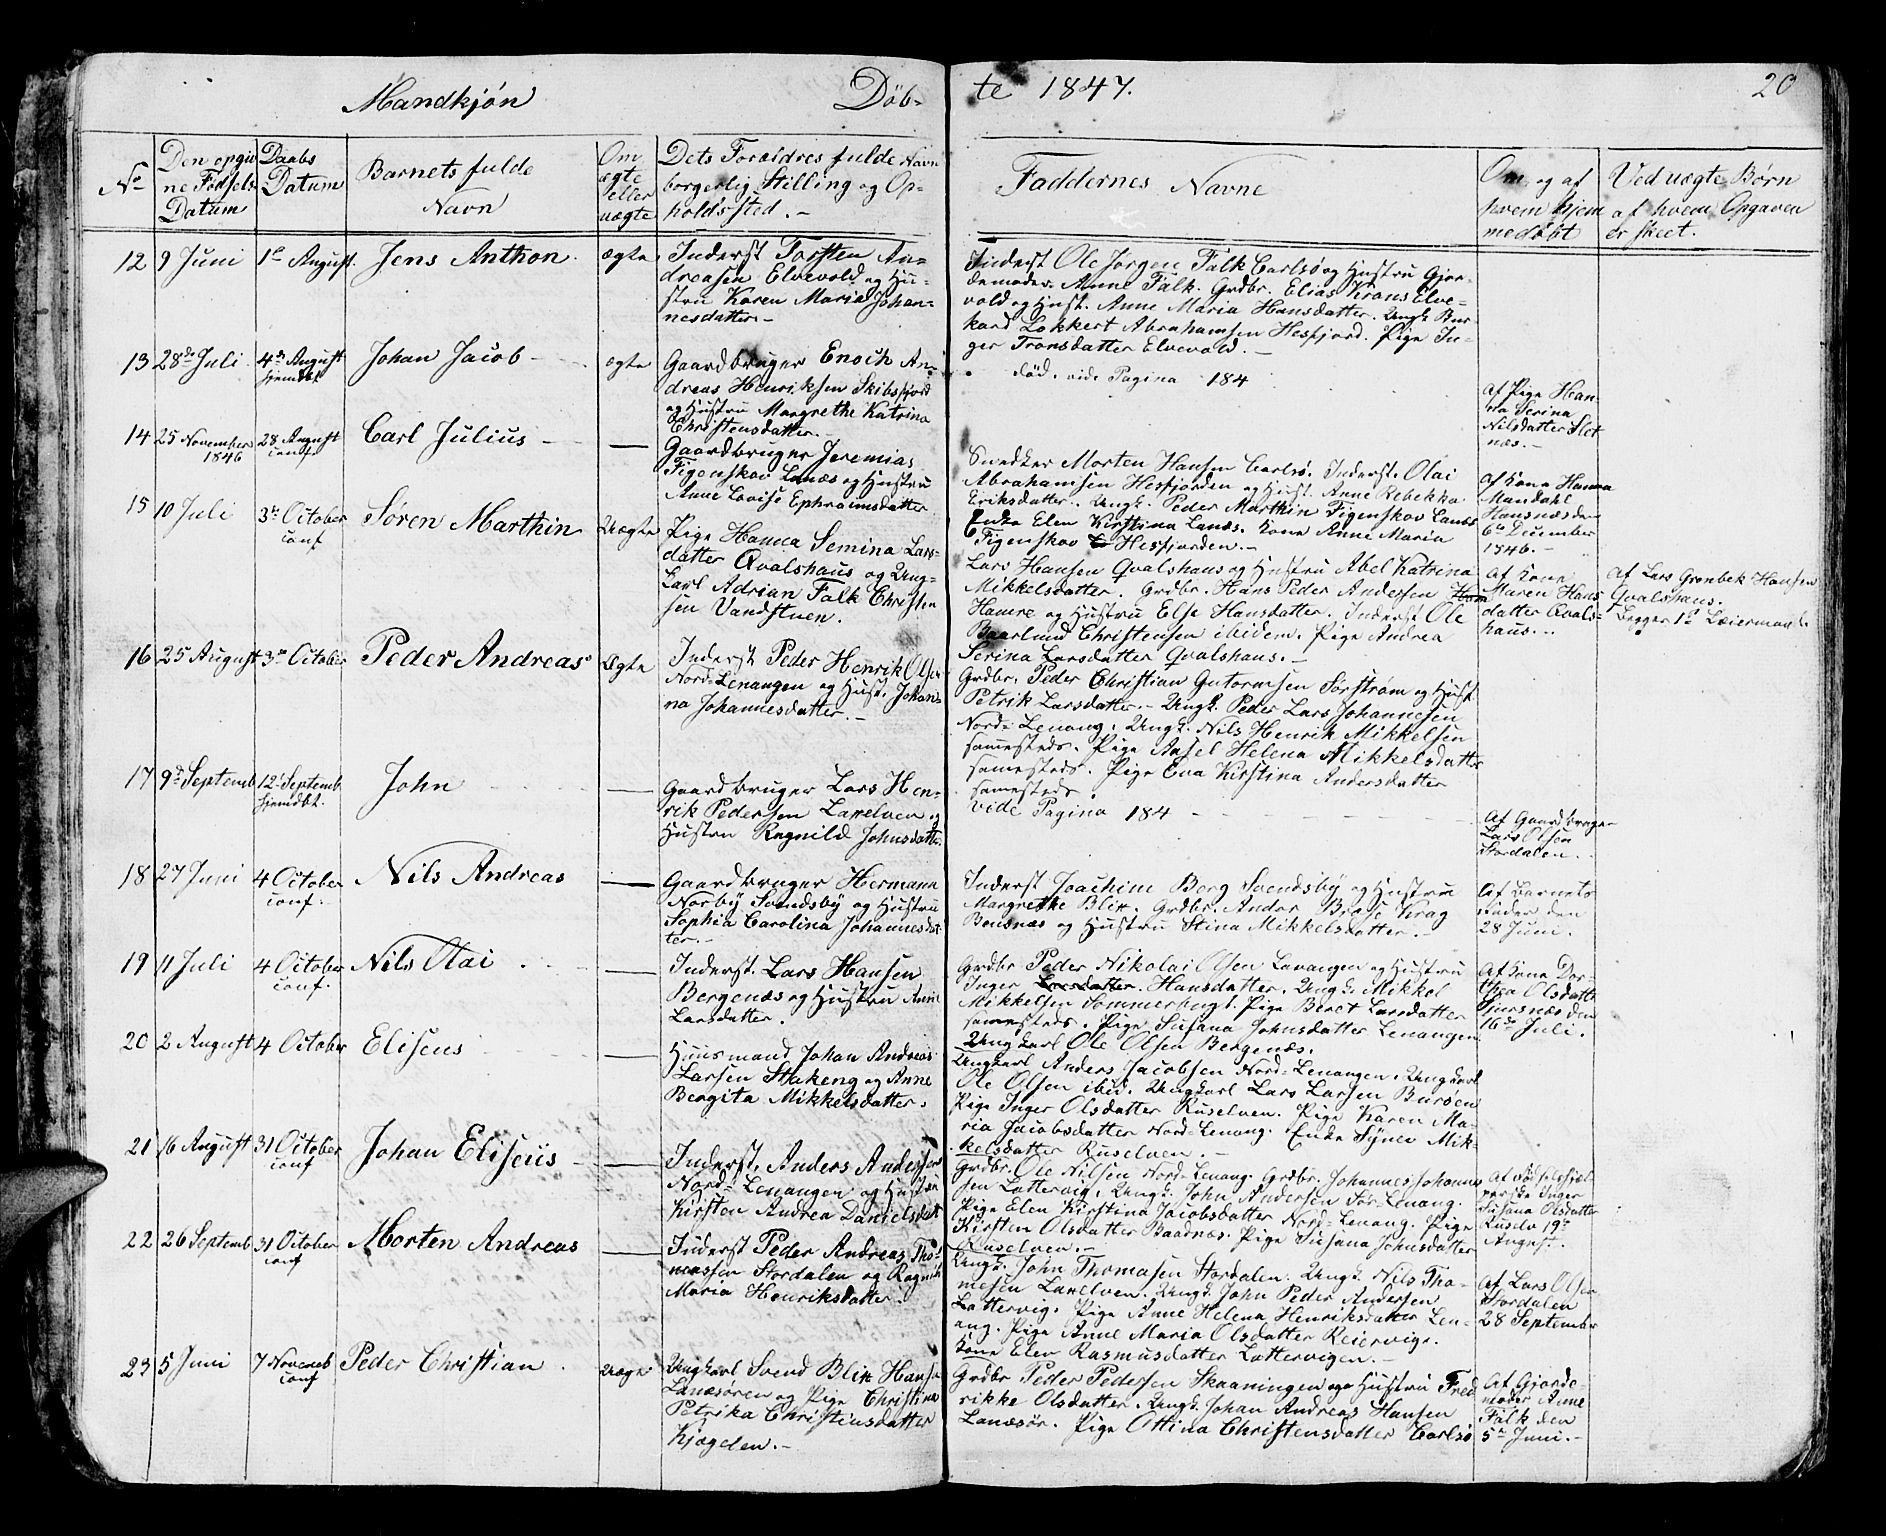 Mandkjøn
Døb-
te 1847.
20
No
Den opgiv
ne Fødsels
Datum
Daabs
Datum
Barnets fulde
Navn
Om
ægte
eller
uægte
Dets Forældres fulde Navn
borgerlig Stilling og Op-
holdssted. -
Faddernes Navne
Om og af
hvem hjem
medøbt
Ved uægte Børn
af hvem Opgaven
er skeet.
12
9 Juni
1te August
Jens Anthon.
ægte
Inderst Torsten An-
dreasen Elvevold og Hu-
stru Karen Maria Johan-
nesdatter. -
Inderst Ole Jørgen Falk Carlsø og Hustru Gjor-
demoder Anne Falk. Grdbr. Elias Krans Elve-
vold og Hust. Anne Maria Hansdatter. Ungk. Bur-
kard Lokkert Abrahamsen Hesfjord. Pige In-
ger Transdatter Elvevold. -
13
28de Juli
4de August
hjemdbt
Johan Jacob
ægte
Gaardbruger Enoch An-
dreas Henriksen Skibsfjord
og Hustru Margrethe Katrina
Christensdatter. -
død. vide Pagina 184
Af Pige Han-
na Serina
Nilsdatter Slet
næs. -
14
25 November
1846
28 August
conf
Carl Julius
Gaardbruger Jeremias
Figenskov Lanæs og Hustru
Anne Lovise Ephraimsdatter
Snedker Morten Hansen Carlsø. Inderst. Olai
Abrahamsen Hesfjorden og Hust. Anne Rebekka
Eriksdatter. Ungk. Peder Marthin Figenskov Lanæs
Enke Elen Kirstina Lanæs. Kone Anne Maria
Figenskov Hesfjorden. -
Af Kone Hanna
Mandahl
Hansnæs den
6te December
1846. -
15
10 Juli
3de October
conf
Søren Marthin
Uægte
Pige Hanna Semina Lars-
datter Qvalshaus og Ung-
karl Adrian Falk Christen
sen Vandstuen.
Lars Hansen Qvalshaus og Hustru Abel Katrina
Mikkelsdatter. Grdbr. Hans Peder Andersen
Hamre og Hustru Else Hansdatter. Inderst Ole
Baarlund Christensen ibidem. Pige Andrea
Serina Larsdatter Qvalshaus. -
Af Kone
Maren Hans
datter Qvals-
haus. -
Af Lars Grønbek Hansen
Qvalshaus.
Begges 1te Leiermaal.
16
25 August
3de October
Peder Andreas
ægte
Inderst Peder Henrik Olsen
Nord-Lenangen og Hust. Johan-
na Johannesdatter. -
Grdbr. Peder Christian Gutormsen Sørstrøm og Hust.
Petrik Larsdatter. - Ungk. Peder Lars Johannesen
Nord-Lenang. Ungk. Nils Henrik Mikkelsen
samesteds. Pige Axsel Helena Mikkelsdatter
samesteds. Pige Eva Kirstina Andersdatter
samesteds.
17
9de Septemb
12te Septemb
hjemdbt.
John
Gaardbruger Lars Hen-
rik Pedersen Lanelven og
Hustru Ragnild Johnsdatter
vide Pagina 184
Af Gaardbruger
Lars Olsen
Stordalen.
18
27 Juni
4 October
conf.
Nils Andreas
Gaardbruger Hermann
Norby Svendsby og Hustru
Sophia Carolina Johannesdat
ter. -
Inderst Joachim Berg Svendsby og Hustru
Margrethe Blix. Grdbr. Andor Brose Krag
Bensnæs og Hustru Stina Mikkelsdatter. -
Af Barnets
Fader den
28 Juni.
19
11 Juli
4 October
conf.
Nils Olai
Inderst. Lars Hansen
Bergenæs og Hustru Anne
Larsdatter.
Grdbr Peder Nikolai Olsen Lavangen og Hustru
Inger Larsdatter. Hansdatter. Ungk. Mikkel
Mikkelsen Sommerhugt. Pige Beret Larsdatter
samesteds. Pige Susana Johnsdatter Lenangen
Ungkarl Ole Olsen Bergenæs.
Af Kone Dor-
thea Olsdatter
Sjursnæs den
16de Juli.
20
2 August
4 October
Eliseus
Huusmand Johan Andreas
Larsen Stakeng og Anne
Bergita Mikkelsdatter.
Ungkarl Anders Jacobsen Nord-Lenangen. Ungkarl
Ole Olsen ibid. Ungkarl Lars Larsen Bursen
Pige Inger Olsdatter Ruselven. Pige Karen Ma-
ria Jacobsdatter Nord-Lenang. Enke Synev Mik-
kelsdatter Ruselven. -
21
16 August
31 October
conf
Johan Eliseus
Inderst. Anders Andersen
Nord-Lenangen og Hustru
Kirsten Andrea Danielsdatt
Grdbr. Ole Nilsen Nord-Lenang. Grdbr. Johannes Johanne
sen Lattervig. Ungk. John Andersen Sør-Lenang.
Pige Elen Kirstina Jacobsdatter Nord-Lenang. Pige
Kirsten Olsdatter Baadnæs. Pige Susana Johnsdatter
Ruselven. -
Af Fødselshjæl-
perske Inger
Susana Olsdatter
Ruselv 19de
August.
22
26 Septemb
31 October
conf
Morten Andreas
Inderst Peder Andreas Tho-
massen Stordalen og Ragnild
Maria Henriksdatter.
Ungk. John Thomasen Stordalen. Ungk. Nils Tho-
mesen Lanelven. Ungk. John Peder Andersen
Lattervig. Pige Anne Helena Henriksdatter Len-
ang. Pige Anne Maria Olsdatter Reiervig.
Kone Elen Rasmusdatter Lattervigen. -
Af Lars Olsen
Stordalen
28 September
23
5 Juni
7 Novemb
conf
Peder Christian
Uægte
Ungkarl Svend Blix Hansen
Lanæsøren og Pige Christina
Petrika Christensdatter
Kjøgelen. -
Grdbr Peder Pedersen Skaaningen og Hustru Fred
rikke Olsdatter. Ungk. Johan Andreas Hansen
Lanæsør. Pige Ottina Christensdatter Carlsø
Af Gjorde-
moder Anne
Falk den
5te Juni. -